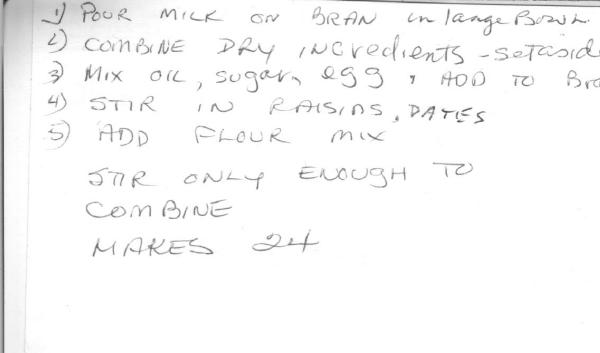 1) POUR MILK ON BRAN in large Bowl
2) COMBINE DRY INCredients - setasid
3) MIX OIL, sugar, egg, ADD TO Bra
4) STIR IN RAISINS, DATES
5) ADD FLOUR MIX
STIR ONLY ENOUGH TO
COMBINE
MAKES 24